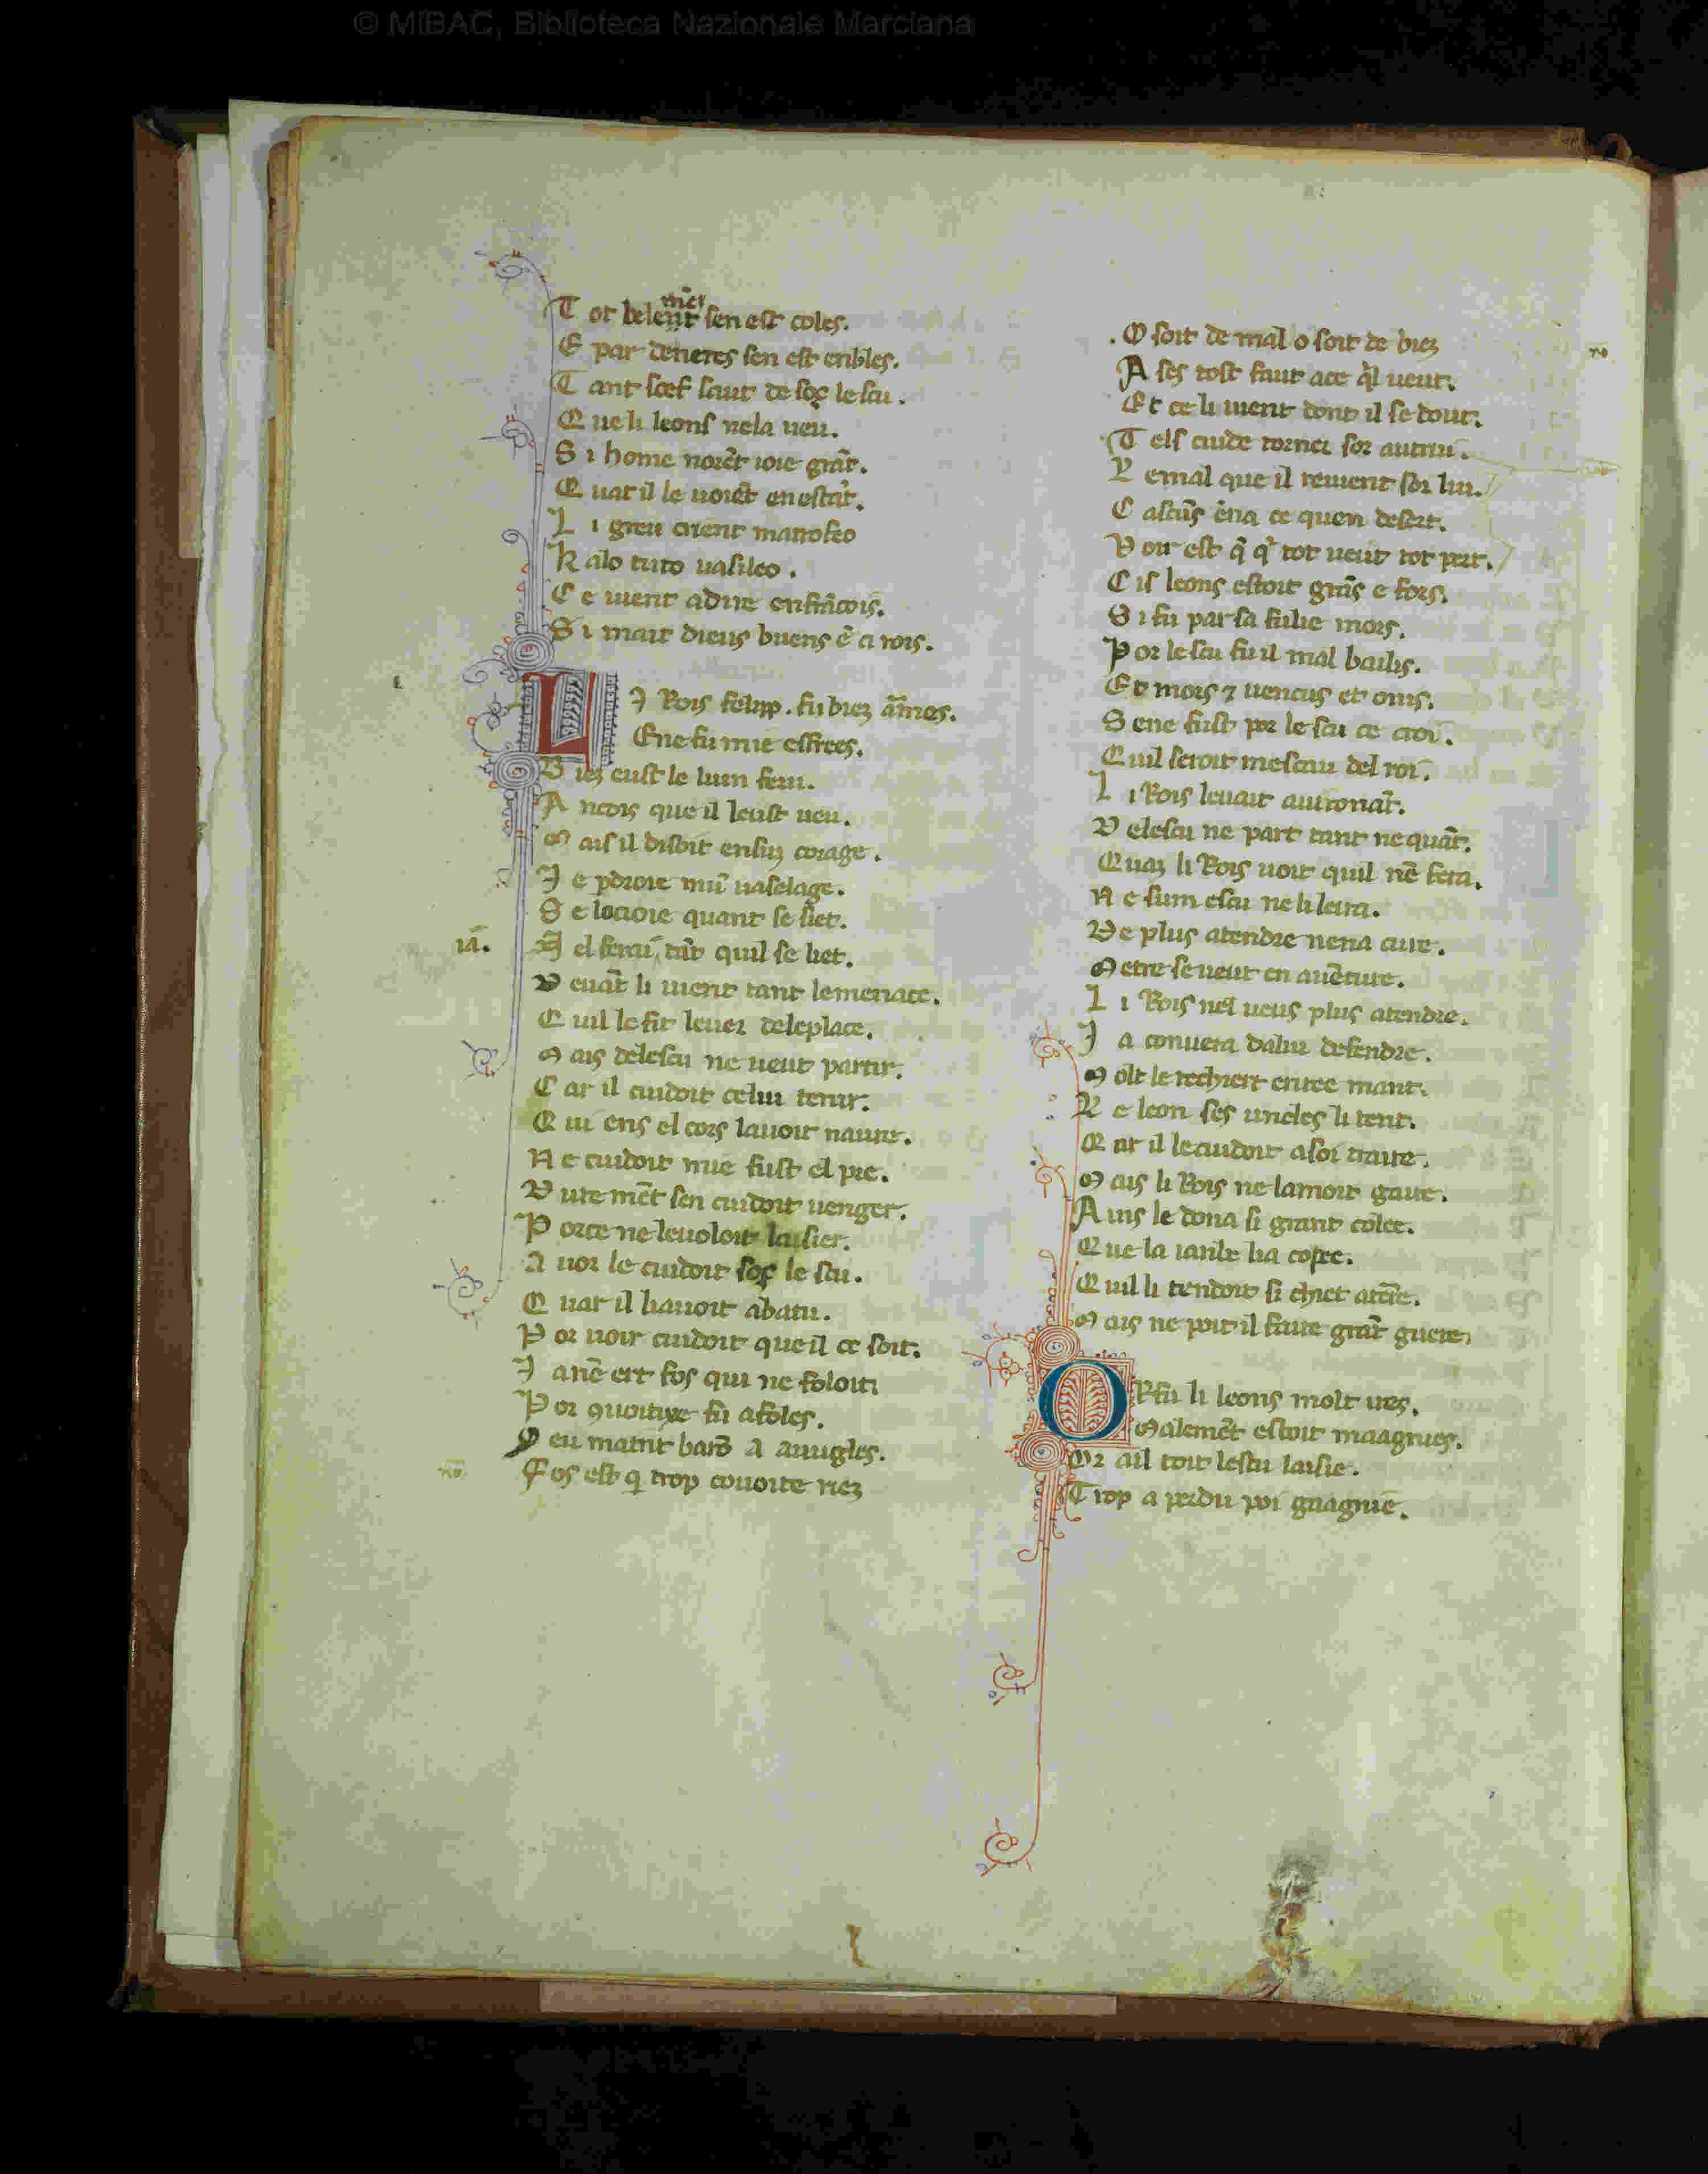 © MiBAC, Biblioteca Nazionale Marciana
Tot belemēt sen est coles.
E par deneres sen est enbles.
Tant soef saut de soz le scu.
Que li leons nela ueu.
Si home norēt ioie grāt.
Quar il le uoiēt en estāt.
Li greu crient matrofeo
Kalo tuto uasileo.
Ce uient adire enfrācois.
Si mait dieus buens ē ci rois.
LI Rois felipp. fu biez āmes.
Ene fu mie effrees.
Biez eust le luin feru.
Ancois que il leust ueu.
Mais il disoit ensuz corage.
Ie pdroie mū uaselage.
Se locioie quant se siet.
iā.
el ferai, tāt quil se liet.
Deuāt li uient tant lemenace.
Quil le fit leuer deleplace.
Mais delescu ne ueut partir.
Car il cuidoit celui tenir.
Qui ens el cors lauoit naure.
Ne cuidoit mie fust el pre.
Dure mēt sen cuidoit uenger.
Porce ne leuoloit laisier.
Auor le cuidoit soz le scu.
Quar il liauoit abatu.
Por uoir cuidoit que il ce soit.
Ia nē ert fos qui ne foloit.
Por quoitixe fu afoles.
eu maint barō a auugles.
Fos est q trop couoite riez
.O soit de mal o soit de biez
Ases tost faut ace ql ueut.
Et ce li uient dont il se dout.
Tels cuide torner sor autrui.
emal que il reuient sor lui.
Cascūs ēna ce quen desert.
Voir est q̄ q' tot ueut tot pert.
Cis leons estoit grās e fors.
Si fu par sa fulie mors.
Por le scu fu il mal bailis.
Et mors 7 uencus et onis.
Sene fust por le scu ce croi.
Quil seroit mescau del roi.
Li Rois leuait auironāt.
Delescu ne part tant ne quāt.
Quaz li Rois uoit quil nē fera.
Ne sum escu ne li leira.
De plus atendre nena cure.
Metre se ueut en auēture.
Li Rois nel ueus plus atendre.
Ia conuera dalui defendre.
Molt le rechiert entee mant.
e leon ses uncles li tent.
Qar il lecuidoit asoi traire.
Mais li Rois ne lamoit gaire.
Ains le dona si grant colee.
Que la ianbe lia copee.
Quil li tendoit si chiet atēre.
Mais ne poit il faire grāt guere.
ORfu li leons molt ires.
Malemēt estoit maagnies.
Or ail tout lescu laisie.
Trop a perdu poi gaagnie.